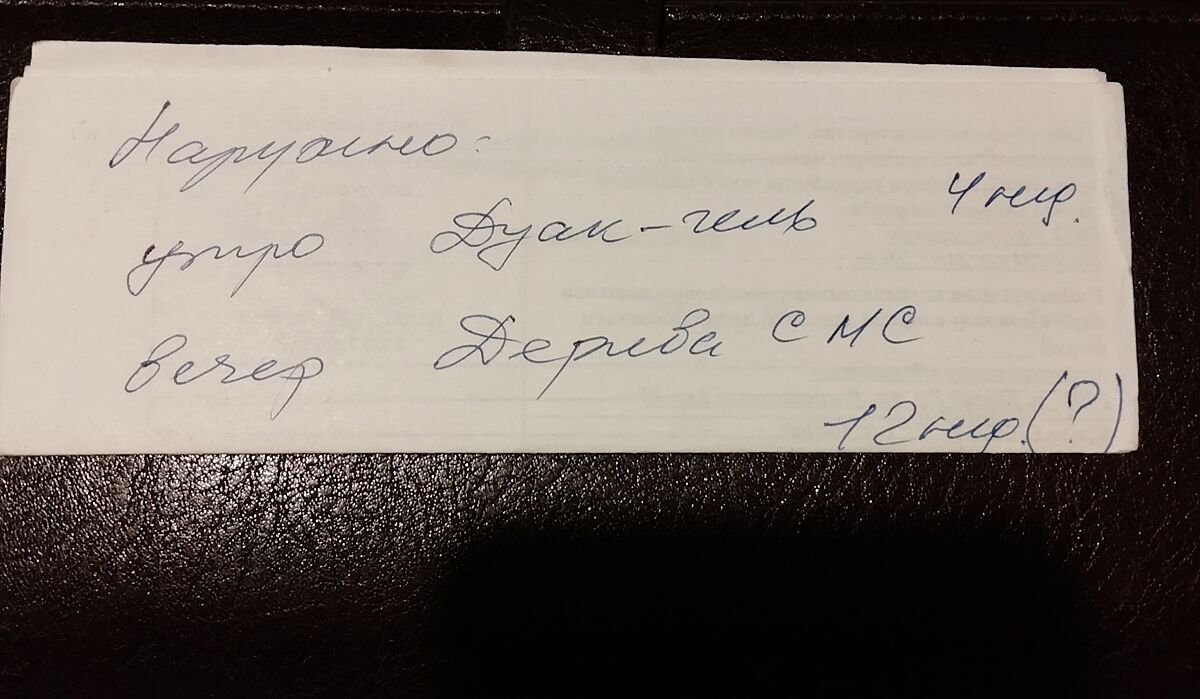 Наружно:
утро Дуак-гель 4 нед.
вечер Дерива С МС
12 нед. (?)